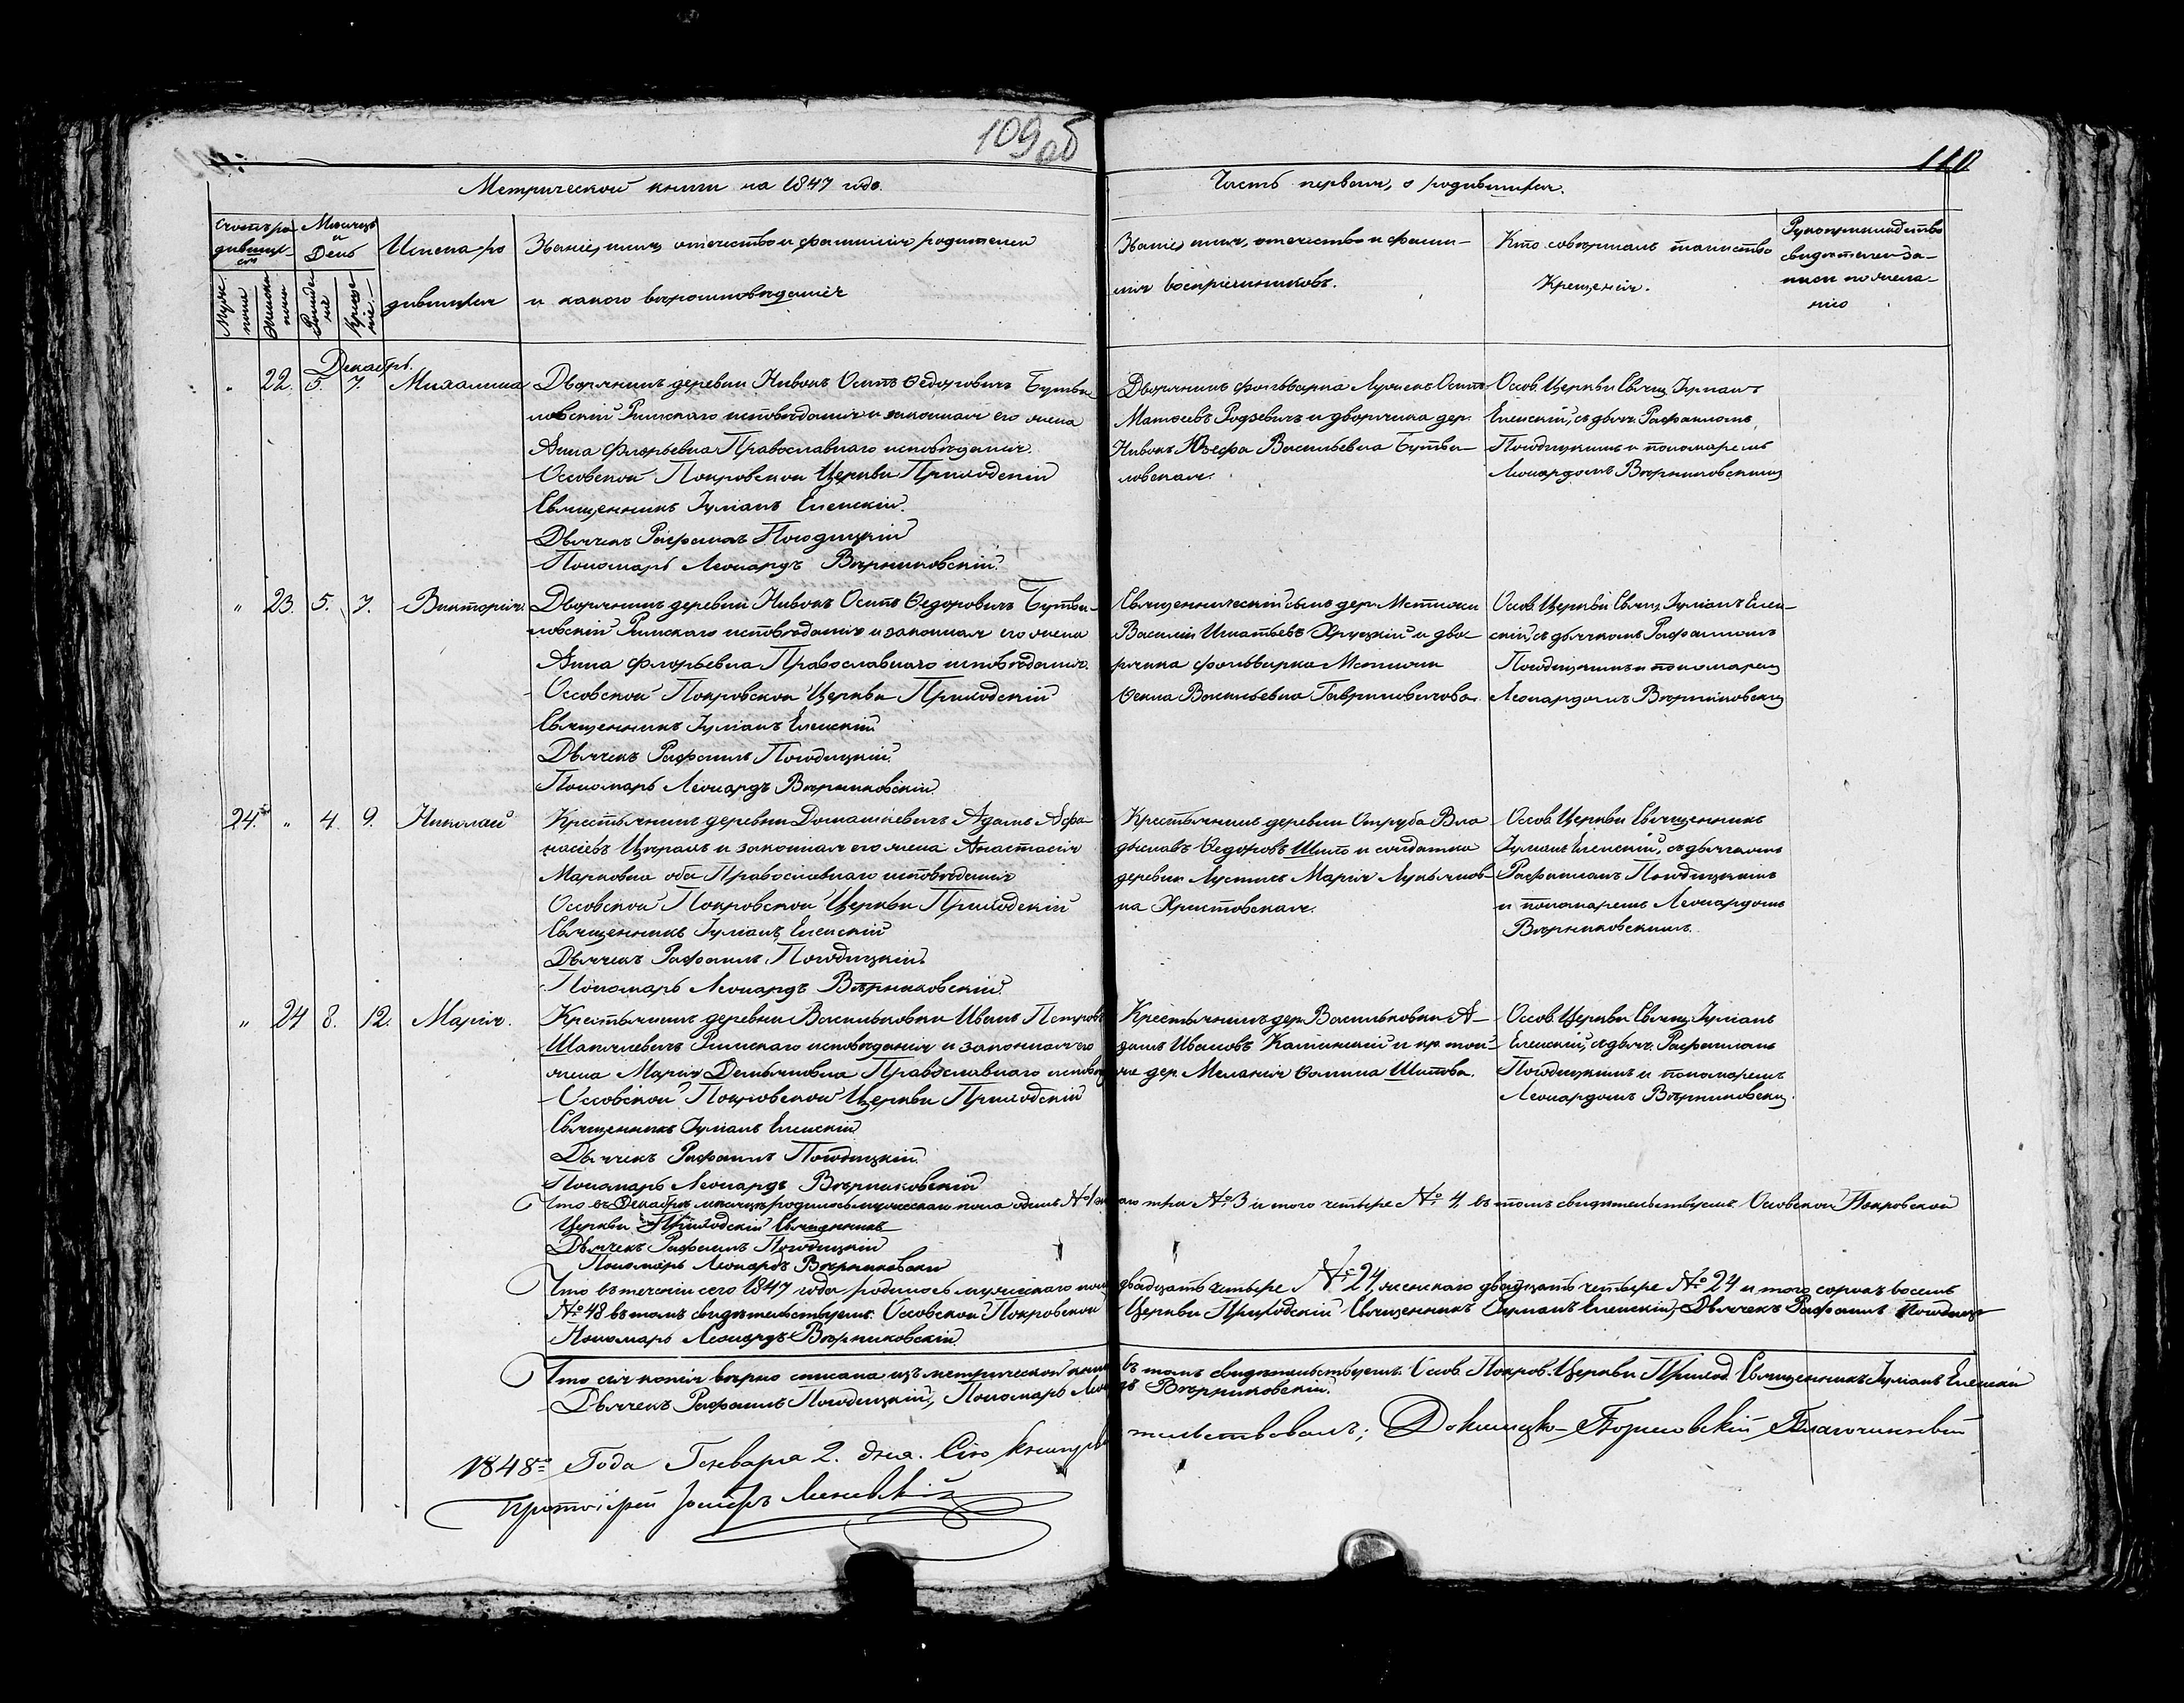 109 об
110
Метрической книги на 1847 годъ.
Часть первая, о родившихся.
Счетъ ро-
дивших-
ся
Мужеска
пола
Женска
пола
Месяцъ
и
День
Рожде-
ніе
Креще-
ніе.
Имена ро
дившихся
Званіе, имя, отечество и фамилія родителей
и какого вѣроисповѣданія
Званіе, имя, отечество и фами-
лія воспріемниковъ.
Кто совершалъ таинство
Крещенія.
Рукоприкладство
свидетелей за-
писи по жела-
нію
Декабрь.
" 22. 5. 7. Михалина
Дворянинъ деревни Нивокъ Осипъ Ѳедоровичъ Бутви
ловскій Римскаго исповѣданія и законная его жена
Анна Флорьевна Православнаго исповѣданія.
Оссовской Покровской Церкви Приходскій
Священникъ Іуліанъ Еленскій.
Дьячекъ Рафаилъ Погодицкій
Пономарь Леонардъ Вѣрниковскій.
Дворянинъ фольварка Осипъ
Матѳеевъ Родзевичъ и дворянка дер.
Нивокъ Юзефа Васильевна Бутви-
ловская.
Оссов. Церкви Свящ. Іуліанъ
Еленскій, съ дьяч. Рафаиломъ
Погодицкимъ и пономаремъ
Леонардомъ Вѣрниковскимъ
" 23. 5. 7. Викторія.
Дворянинъ деревни Нивокъ Осипъ Ѳедоровичъ Бутви-
ловскій Римскаго исповѣданія и законная его жена
Анна Флорьевна Православнаго исповѣданія.
Оссовской Покровской Церкви Приходскій
Священникъ Іуліанъ Еленскій
Дьячекъ Рафаилъ Погодицкій.
Пономарь Леонардъ Вѣрниковскій.
Священническій сынъ дер. Мстижи
Василій Игнатьевъ Хруцкій и дво-
рянка фольварка Мстижи
Ѳекла Васильевна Гавриловичова.
Оссов. Церкви Свящ. Іуліанъ Елен-
скій, съ дьячкомъ Рафаиломъ
Погодицкимъ и пономарем
Леонардомъ Вѣрниковским
24. " 4. 9. Николай
Крестьянинъ деревни Домашкевичъ Адамъ Аѳа-
насіевъ и законная его жена Анастасія
Марковна оба Православнаго исповѣданія
Оссовской Покровской Церкви Приходскій
Священникъ Іуліанъ Еленскій
Дьячекъ Рафаилъ Погодицкій.
Пономарь Леонардъ Вѣрниковскій.
Крестьянинъ деревни Отруба Вла
диславъ Ѳедоровъ Шило и солдатка
деревни Марія Лукьянов-
на Христовская.
Оссов. Церкви Священникъ
Іуліанъ Еленскій, съ дьячкомъ
Рафаиломъ Погодицкимъ
и пономаремъ Леонардомъ
Вѣрниковскимъ.
" 24 8. 12. Марія.
Крестьянинъ деревни Васильковки Иванъ Петровъ
Шапялевичъ Римскаго исповѣданія и законная его
жена Марія Демьяновна Православнаго исповѣд
Оссовской Покровской Церкви Приходскій
Священникъ Іуліанъ Еленскій
Дьячекъ Рафаилъ Погодицкій
Пономарь Леонардъ Вѣрниковскій
Крестьянинъ дер. Васильковки А-
дамъ Ивановъ Калинскій и кр. той
же дер. Меланія Ѳомина Шилова.
Оссов. Церкви Свящ. Іуліанъ
Еленскій, съ дьяч. Рафаиломъ
Погодицкимъ и пономаремъ
Леонардомъ Вѣрниковским.
Что въ Декабрѣ месяцѣ родилось мужескаго пола одинъ № 1 женскаго три № 3 и того четыре № 4, въ томъ свидѣтельствуемъ. Оссовской Покровской
Церкви Приходскій Священникъ
Дьячекъ Рафаилъ Погодицкій
Пономарь Леонардъ Вѣрниковски
Что въ теченіи сего 1847 года родилось мужескаго пола двадцать четыре № 24, женскаго двадцать четыре № 24 и того сорокъ восемь
№ 48 въ томъ свидѣтельствуемъ. Оссовской Покровской Церкви Приходскій Священникъ Іуліанъ Еленскій, Дьячекъ Рафаилъ Погодицк
Пономарь Леонардъ Вѣрниковскій.
Что сія копія вѣрно списана изъ метрической книги въ томъ свидѣтельствуемъ. Оссов. Покров. Церкви Приход. Священникъ Іуліанъ Еленскій
Дьячекъ Рафаилъ Погодицкій, Пономарь Леонардъ Вѣрниковскій.
1848го Года Генваря 2. дня. Сію книгу свидѣтельствовалъ; Докшицко-Борисовскій Благочинный
Протоіерей Іосифъ